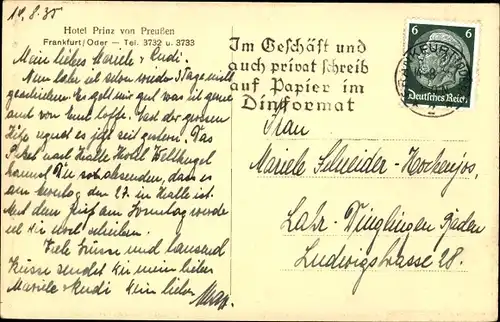 19.8.35
Hotel Prinz von Preußen
Frankfurt/Oder — Tel. 3732 u. 3733
Mein liebes Mariele u. Rudi.
Nun habe ich schon wieder 3 Tage nicht
geschrieben. Es geht mir gut was ich gerne
auch von Euch hoffe. Nach der grossen
Hitze regnet es jetzt seit gestern. Das
Paket nach Halle Hotel Weltkugel
kannst Du so absenden, dass es
am Montag den 27. in Halle ist.
Mit dem Brief am Sonntag werde
ich Dir noch schreiben.
Viele Grüsse und tausend
Küsse sendet Dir mein liebes
Mariele u. Rudi Dein lieber
Max.
Im Geschäft und
auch privat schreib
auf Papier im
Dinformat
6 6
Deutsches Reich
FRANKFURT (ODER)
Frau
Mariele Schneider-Hochenjos,
Lahr-Dinglingen Baden
Ludwigstrasse 28.